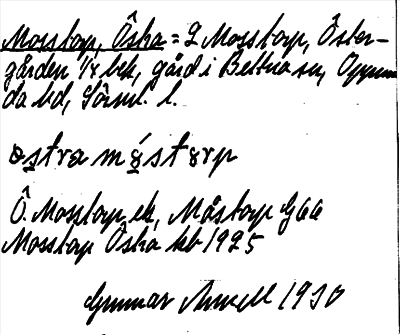 Mosstorp, Östra = 2 Mosstorp, Öster-
gården 1/4 bek, gård i Bettna sn, Oppun
da hd, Sörml. l.
østra møstørp
Ö. Mosstorp ek, Måstorp G66
Mosstorp Östra kb 1925
Gunnar 1930